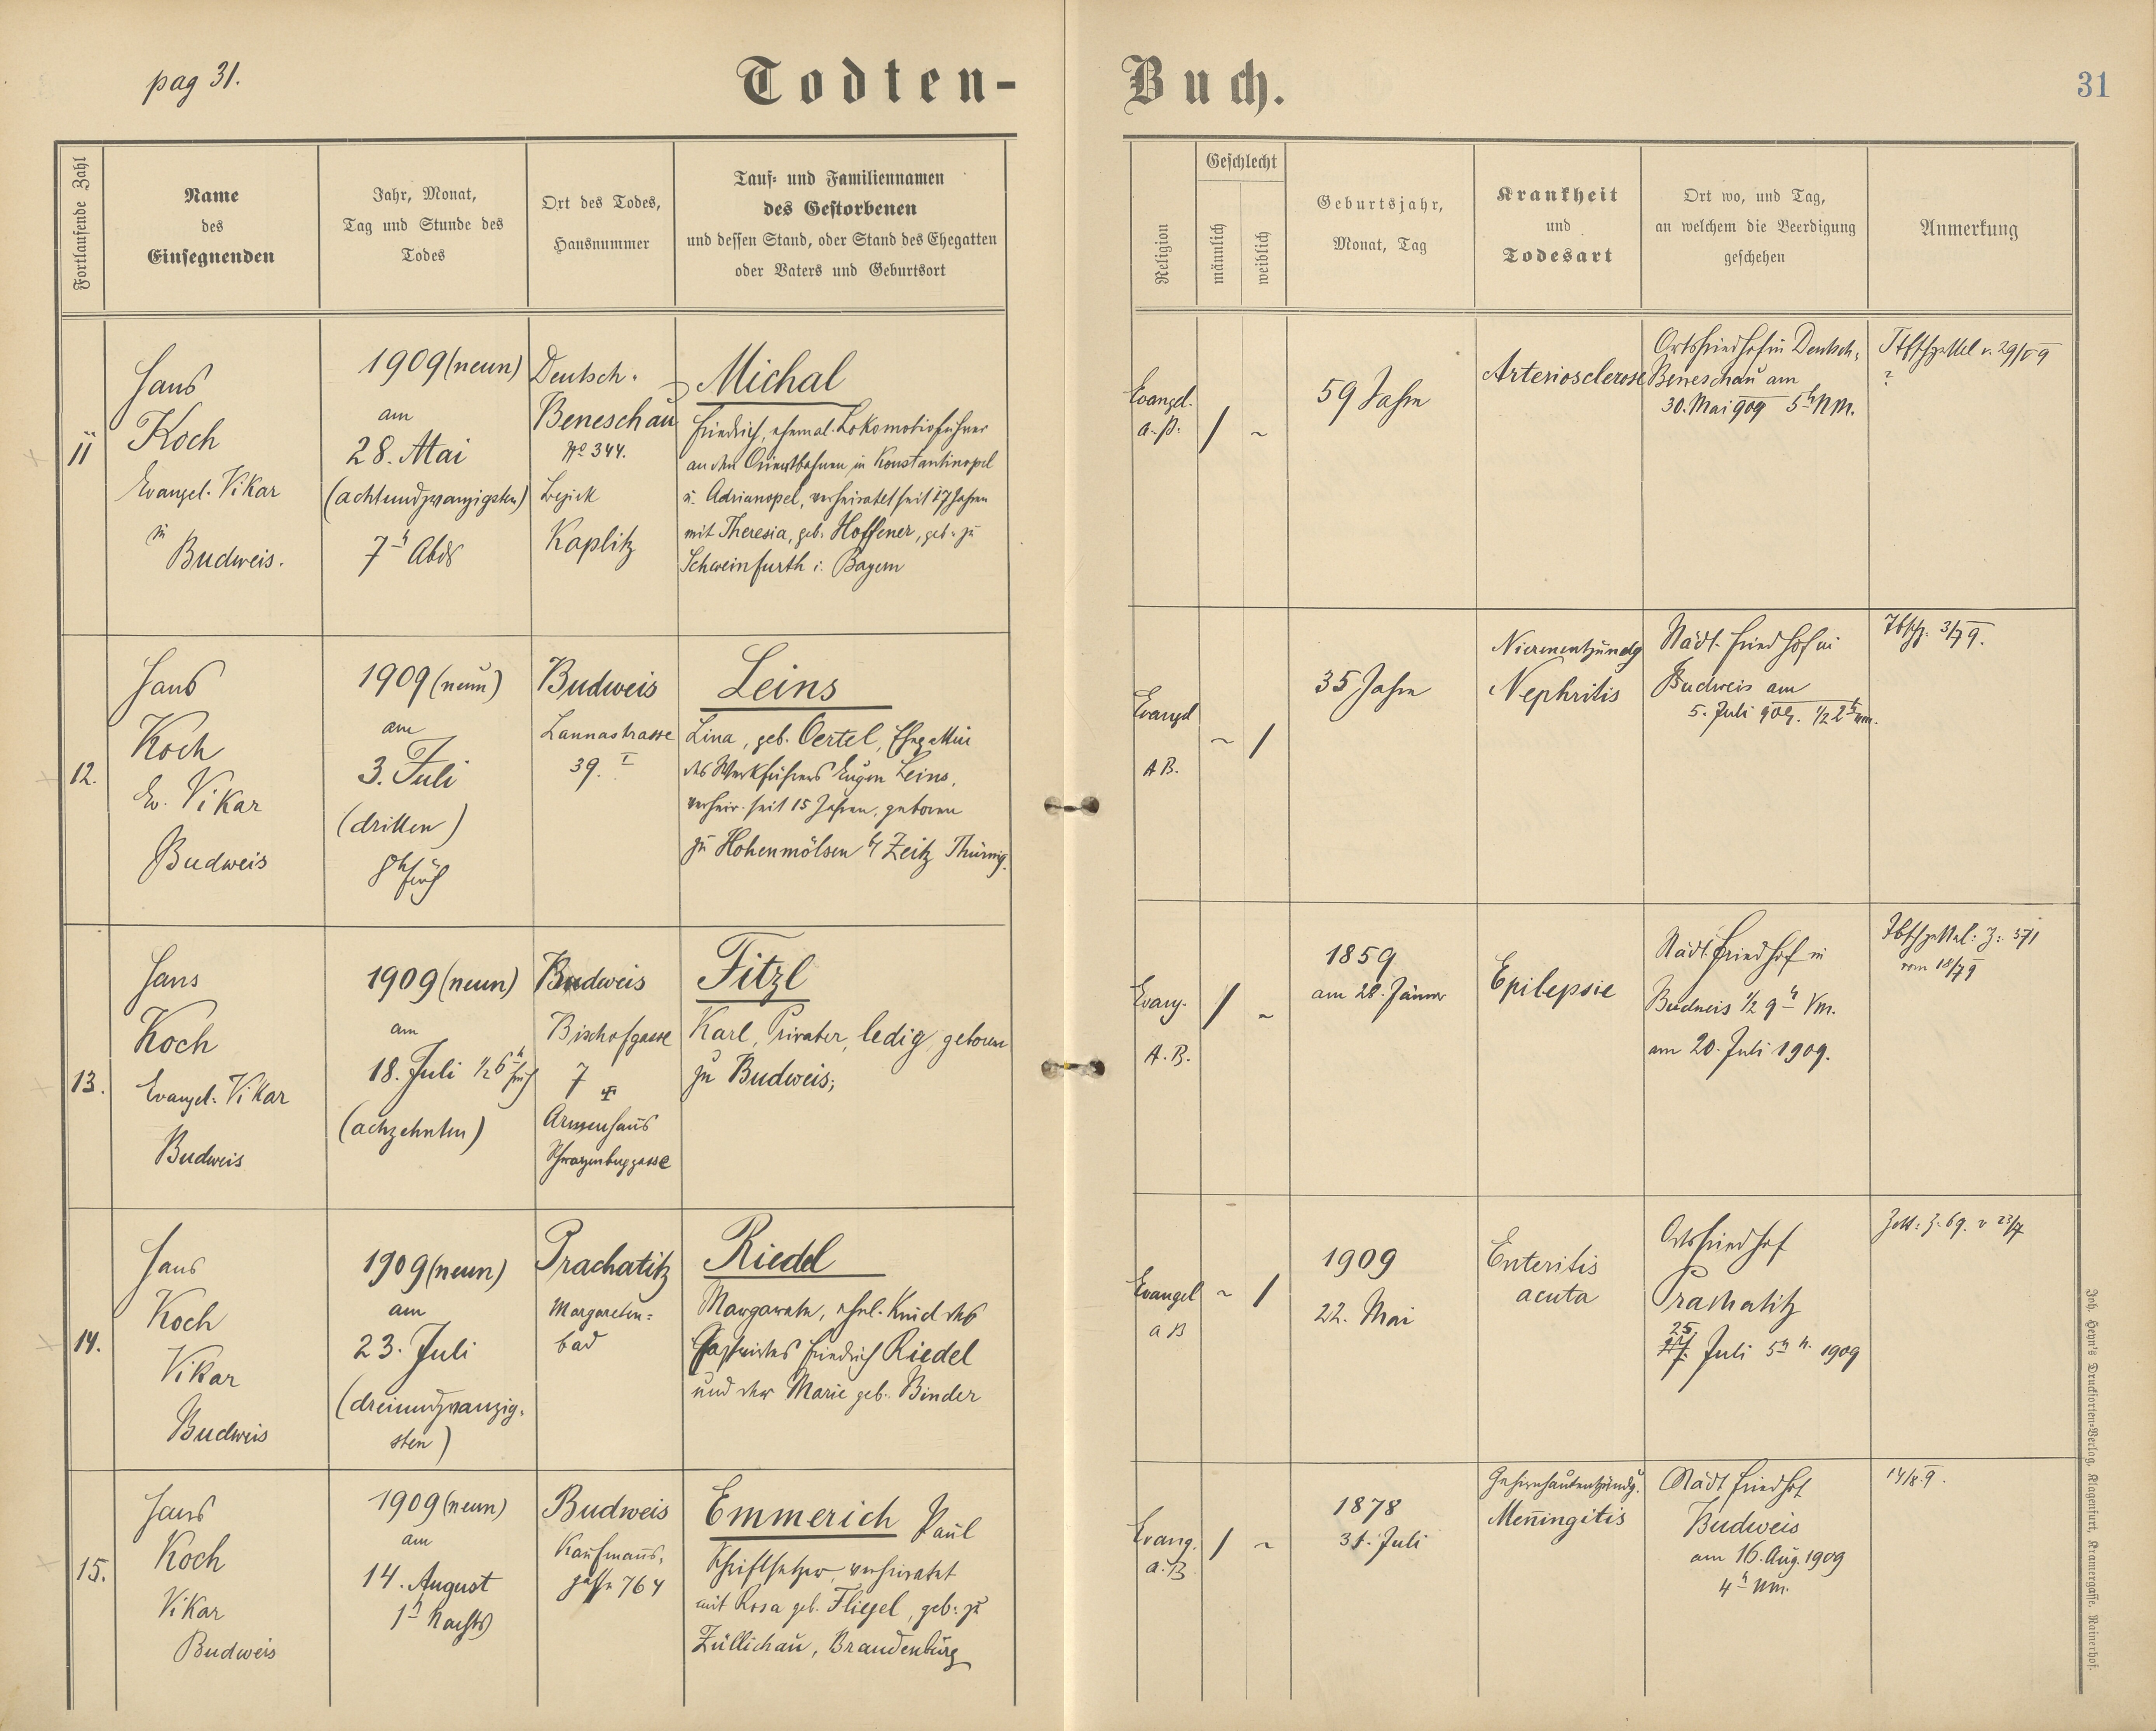 pag 31.
Todten-
Buch.
31
Fortlaufende Zahl
Name
des
Einsegnenden
Jahr, Monat,
Tag und Stunde des
Todes
Ort des Todes,
Hausnummer
Tauf= und Familiennamen
des Gestorbenen
und dessen Stand, oder Stand des Ehegatten
oder Vaters und Geburtsort
Religion
Geschlecht
männlich
weiblich
Geburtsjahr,
Monat, Tag
Krankheit
und
Todesart
Ort wo, und Tag,
an welchem die Beerdigung
geschehen
Anmerkung
11
Hans
Koch
Evangel. Vikar
in
Budweis.
1909 (neun)
am
28. Mai
(achtundzwanzigsten)
7h Abds
Deutsch-
Beneschau
No 344.
Bezirk
Kaplitz
Michal
Friedrich, ehemal. Lokomotivführer
an den Orientbahnen in Konstantinopel
u. Adrianopel, verheiratet seit 17 Jahren
mit Theresia, geb. Hoffener, geb. zu
Schweinfurth i. Bayern
Evangel.
a. B.
/ ~
59 Jahre
Arteriosclerose
Ortsfriedhof in Deutsch-
Beneschau am
30. Mai 909 5h NM.
v. 29/V 9
?
12.
Hans
Koch
Ev. Vikar
Budweis
1909 (neun)
am
3. Juli
(dritten)
8h früh
Budweis
Lannastrasse
39. I
Leins
Lina, geb. Oertel, Ehegattin
des Werkführers Eugen Leins,
verheir. seit 15 Jahren, geboren
zu Hohenmölsen b/ Zeitz Thüring.
Evangel
A B.
~ /
35 Jahre
Nierenentzündg
Nephritis
Städt. Friedhof in
Budweis am
5. Juli 909. 1/2 2h nm.
3/7 9.
13.
Hans
Koch
Evangel. Vikar
Budweis
1909 (neun)
am
18. Juli 1/2 6h früh
(achzehnten)
Budweis
Bischofgasse
7
Armenhaus
Schwarzenberggasse
Fitzl
Karl, Privater, ledig, geboren
zu Budweis;
Evang.
A. B.
/ ~
1859
am 28. Jänner
Epilepsie
Städt. Friedhof in
Budweis 1/2 9h Vm.
am 20. Juli 1909.
Z: 571
vom 18/7 9
14.
Hans
Koch
Vikar
Budweis
1909 (neun)
am
23. Juli
(dreiundzwanzig-
sten)
Prachatitz
Margareten=
bad
Riedel
Margareta, ehel. Kind des
Gastwirtes Friedrich Riedel
und der Marie geb. Binder
Evangel
a B
~ /
1909
22. Mai
Enteritis
acuta
Ortsfriedhof
Prachatitz
25.
Juli 5h N. 1909
Z. 69. v 23/7
15.
Hans
Koch
Vikar
Budweis
1909 (neun)
am
14. August
1h Nachts
Budweis
Kaufmanns-
gasse 764
Emmerich Paul
Schriftsetzer, verheiratet
mit Rosa geb. Fliegel, geb. zu
Züllichau, Brandenburg
Evang.
a. B
/ ~
1878
31. Juli
Gehirnhautentzündg.
Meningitis
Städt Friedhof
Budweis
am 16. Aug. 1909
4h Nm.
14/8. 9.
Joh. Heyn's Drucksorten=Verlag, Klagenfurt, Kramergasse, Rainerhof.